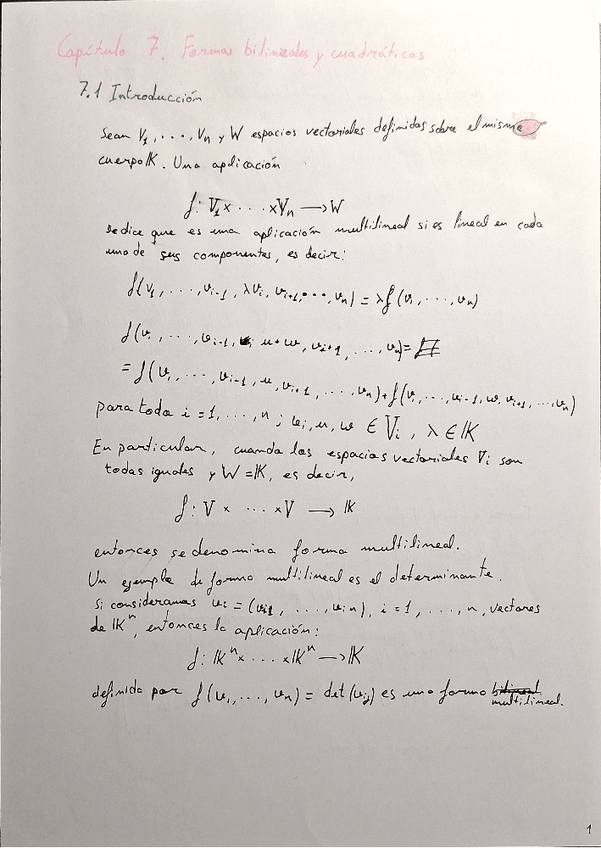 Capítulo 7. Formas bilineales y cuadráticas
7.1 Introducción
Sean V₁, ..., Vₙ y W espacios vectoriales definidos sobre el mismo
cuerpo K. Una aplicación
f: V₁ x ... x Vₙ → W
se dice que es una aplicación multilineal si es lineal en cada
uno de sus componentes, es decir:
f(v₁, ..., vᵢ₋₁, λvᵢ, vᵢ₊₁, ..., vₙ) = λf(v₁, ..., vₙ)
f(v₁, ..., vᵢ₋₁, u+w, vᵢ₊₁, ..., vₙ) =
= f(v₁, ..., vᵢ₋₁, u, vᵢ₊₁, ..., vₙ) + f(v₁, ..., vᵢ₋₁, w, vᵢ₊₁, ..., vₙ)
para todo i = 1, ..., n ; vᵢ, u, w ∈ Vᵢ, λ ∈ K
En particular, cuando los espacios vectoriales Vᵢ son
todos iguales y W = K, es decir,
f: V x ... x V → K
entonces se denomina forma multilineal.
Un ejemplo de forma multilineal es el determinante.
Si consideramos vᵢ = (vᵢ₁, ..., vᵢₙ), i = 1, ..., n, vectores
de Kⁿ, entonces la aplicación:
f: Kⁿ x ... x Kⁿ → K
definida por f(v₁, ..., vₙ) = det(vᵢⱼ) es una forma bilineal
multilineal.
1